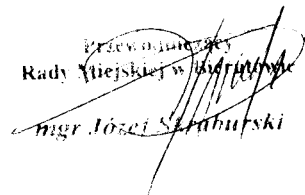 Przewodniczący
Rady Miejskiej w Bierutowie
mgr Józef Skraburski